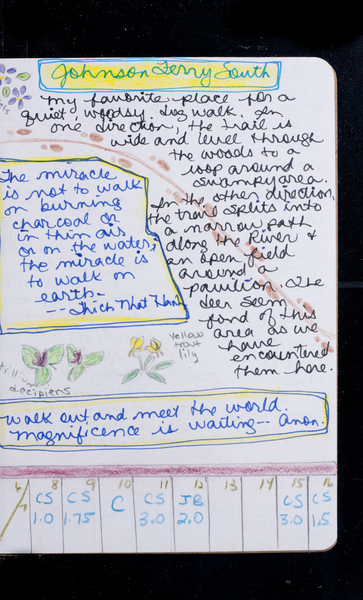 Johnson Ferry South
My favorite place for a
quiet, woodsy, dog walk. In
one direction, the trail is
wide and level through
the woods to a
loop around a
swampy area.
In the other direction,
the trail splits into
a narrow path
along the River &
an open field
around a
pavilion. The
deer seem
fond of this
area as we
have
encountered
them here.
The miracle
is not to walk
on burning
charcoal or
in thin air
or on the water;
the miracle is
to walk on
earth.
-- Thich Nhat Han
Yellow
trout
lily
decipiens
Walk out and meet the world.
Magnificence is waiting -- Anon.
8 9 10 11 12 13 14 15 16
CS CS C CS JB CS CS
1.0 1.75 3.0 2.0 3.0 1.5